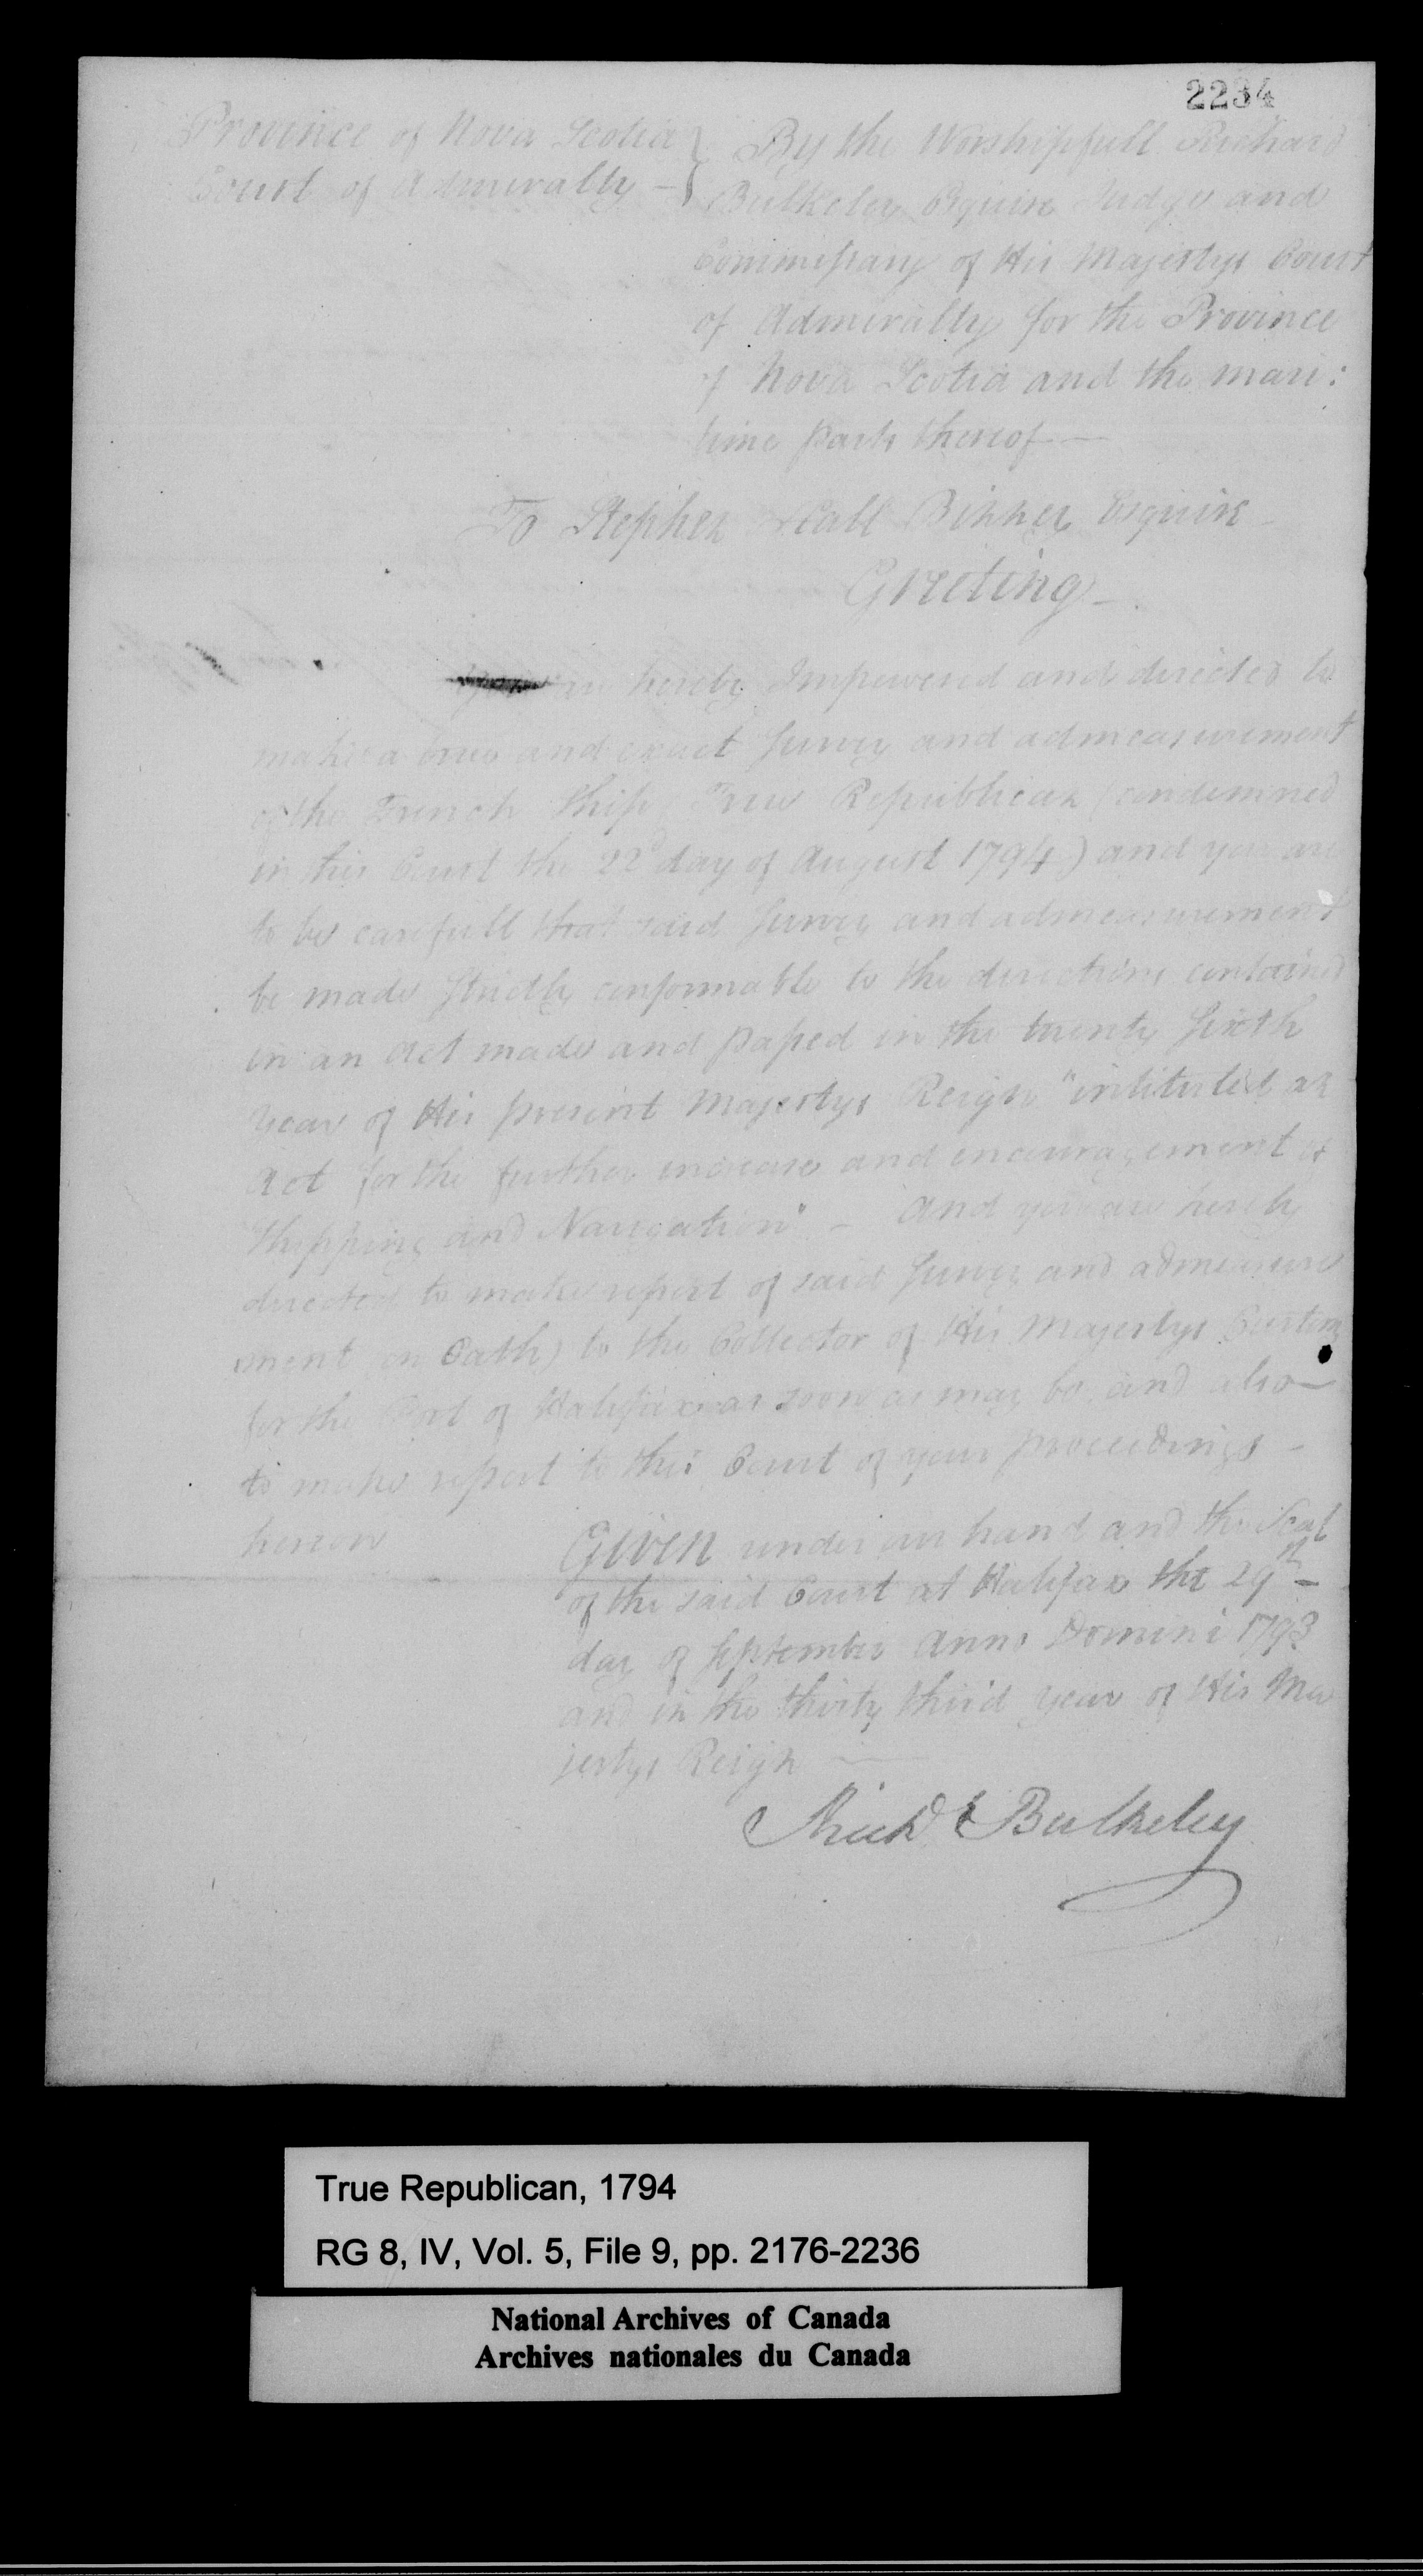 2234
Province of Nova Scotia } By the Worshipfull Richard
Court of Admiralty - } Bulkeley Esquire Judge and
Commissary of His Majestys Court
of Admiralty for the Province
of Nova Scotia and the mari:
time parts thereof —
To Stephen Hall Binney Esquire -
Greeting -
You are hereby Impowered and directed to
make a true and exact Survey and admeasurement
of the French Ship True Republican (condemned
in this Court the 22d day of August 1794) and you are
to be carefull that said Survey and admeasurement
be made Strictly conformable to the directions contained
in an Act made and passed in the twenty Sixth
year of His present Majestys Reign "intituled an
Act for the further increase and encouragement of
Shipping and Navigation" - And you are hereby
directed to make report of said Survey and admeasure
ment (on Oath) to the Collector of His Majestys Customs
for the Port of Halifax as soon as may be and also
to make report to this Court of your proceedings -
hereon
Given under my hand and the Seal
of the said Court at Halifax the 29th -
day of September Anno Domini 1793
and in the thirty third year of His Ma
jestys Reign —
Richd Bulkeley
True Republican, 1794
RG 8, IV, Vol. 5, File 9, pp. 2176-2236
National Archives of Canada
Archives nationales du Canada